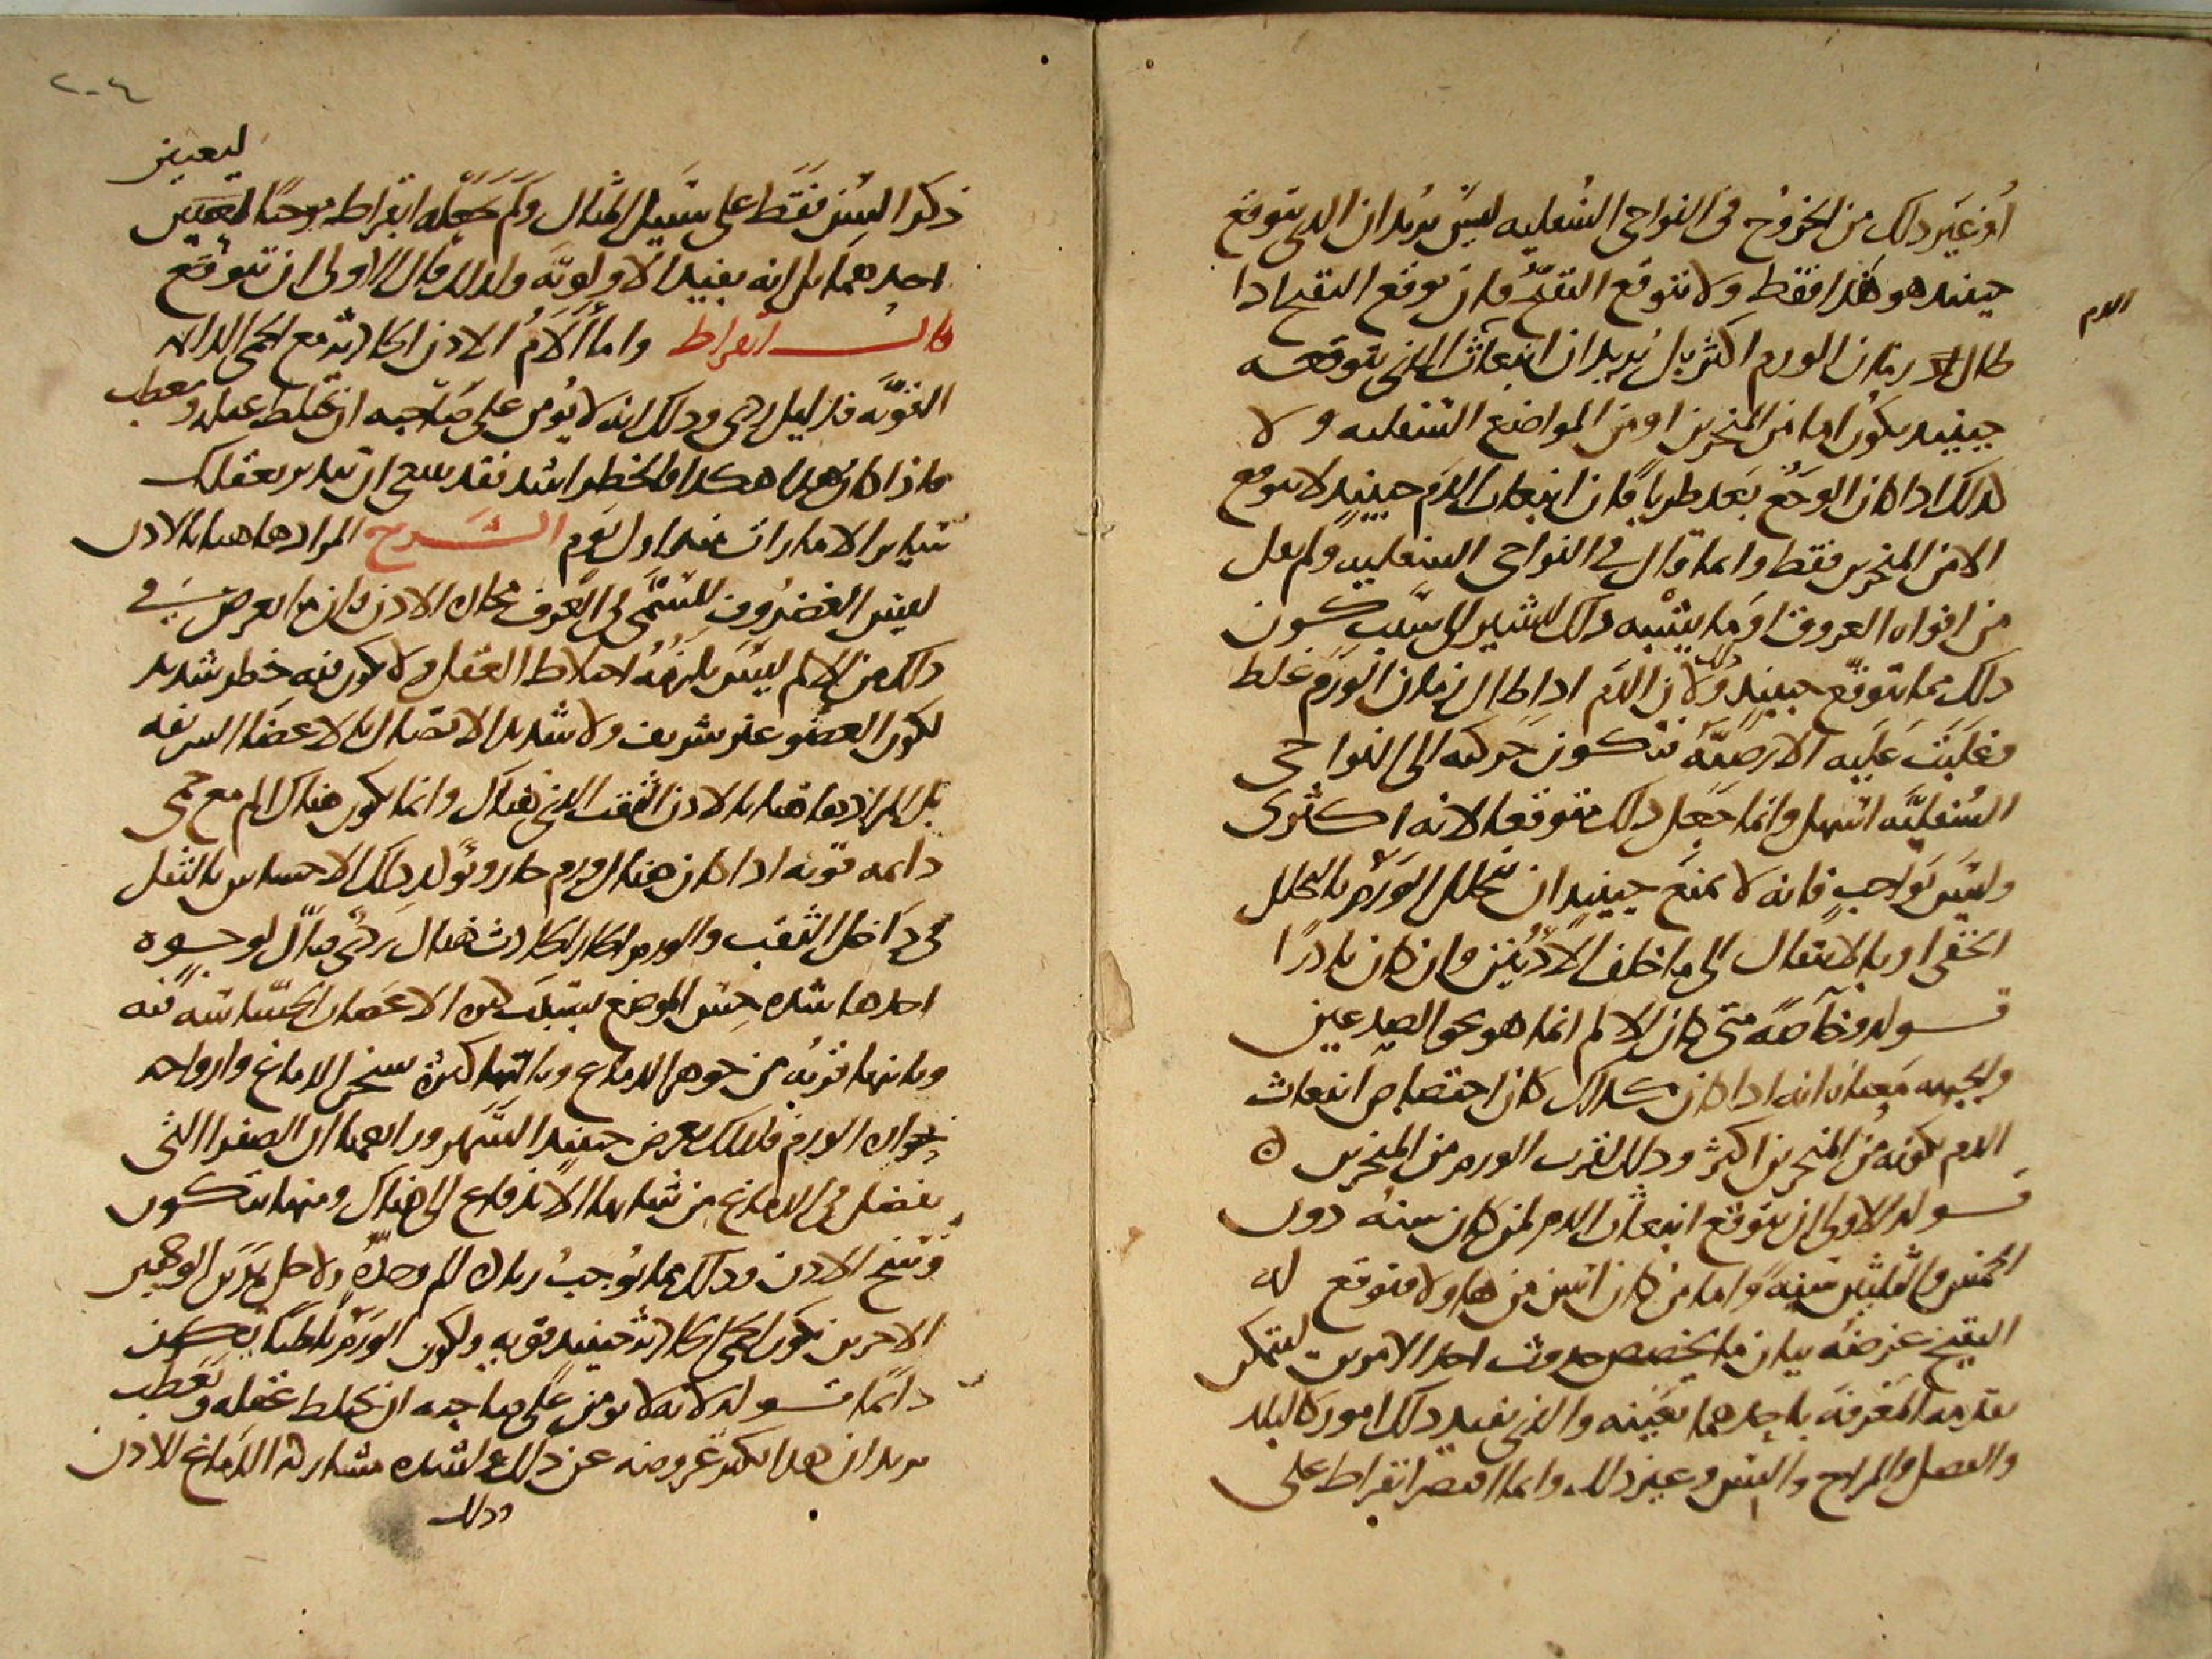 أو غير ذلك من الخروج في النواحي السفليه ليس يريد ان الذي يتوقع
حينيد هو هذا فقط ولا يتوقع التقيح فان توقع التقيح اذا
الدم
طال زمان الورم اكثر بل يريد ان انبعاث الذي يتوقعه
حينيد يكون اما من المنخرين او من المواضع السفليه ولا
كذلك اذا كان الوجع بعد طريا فان انبعاث الدم حينيد لا يتوقع
الا من المنخرين فقط وانما قال في النواحي السفليه ولم يقل
من افواه العروق او ما يشبه ذلك ليشير الى سبب كون
ذلك مما يتوقع حينيد وذلك لان الدم اذا طال زمان الورم غلظ
وغلبت عليه الارضيه فتكون حركته الى النواحي
السفليه اسهل وانما جعل ذلك متوقعا لانه اكثري
وليس بواجب فانه لا يمنع حينيد ان يتحلل الورم بالتحلل
الخفي او بالانتقال الى ما خلف الاذنين وان كان نادرا
قوله وخاصه متى كان الالم انما هو نحو الصدغين
والجبهه معناه انه اذا كان كذلك كان اختصاص انبعاث
الدم بكونه من المنخرين اكثر وذلك لقرب الورم من المنخرين ه
قوله الاولى ان يتوقع انبعاث الدم لمن كان سنه دون
الخمس والثلثين سنه واما من كان اسن من هاولا فتوقع له
التقيح غرضه بيان ما يخصص حدوث احد الامرين ليتمكن
تقدمه المعرفه باحدهما بعينه والذي يفيد ذلك امور كالبلد
والفصل والمزاج والسن وغير ذلك وانما اقتصر ابقراط على
٢٠٤
ليعين
ذكر السن فقط على سبيل المثال ولم يجعله ابقراط موجبا لتعيين
احدهما بل انه يفيد الاولويه ولذلك قال الاولى ان تتوقع
قال ابقراط واما ألام الاذن الحاده مع الحمى الدايمه
القويه فدليل ردي وذلك انه لا يؤمن على صاحبه ان يختلط عقله ويعطب
فاذا كان هذا هكذا والخطر اشد فقد ينبغي ان تتدبر بعقلك
ساير الامارات منذ اول يوم الشرح المراد هاهنا بالاذن
ليس الغضروف المسمى في العرف العام الاذن فان ما يعرض في
ذلك من الالم ليس يلزمه اختلاط العقل ولا يكون فيه خطر شديد
لكون العضو غير شريف ولا شديد الاتصال بالاعضا الشريفه
بل المراد هاهنا بالاذن الثقب الذي هناك وانما يكون هناك الم مع حمى
دايمه قويه اذا كان هناك ورم حار ويؤلد ذلك الاحساس بالثقل
في داخل الثقب والورم الحار الحادث هناك ردي قتال لوجوه
احدها شده حس الموضع بسبب كثره الاعصاب الحساسه فيه
وثانيها قربه من جوهر الدماغ وثالثها كثره تسخن الدماغ وارواحه
بحراره الورم فلذلك يعرض حينيد السهر ورابعها ان الصفرا التي
تفضل في الدماغ من شانها الاندفاع الى هناك ومنها يتكون
وسخ الاذن وذلك مما يوجب زياده الم وحده ولاجل هذين الوجهين
الاخرين تكون الحمى الحادثه حينيد قويه ولكون الورم باطنا تكون
دايما قوله لانه لا يومن على صاحبه ان يختلط عقله ويعطب
يريد ان هذا يكثر عروضه عن ذلك لشده مشاركه الدماغ للاذن
وذلك